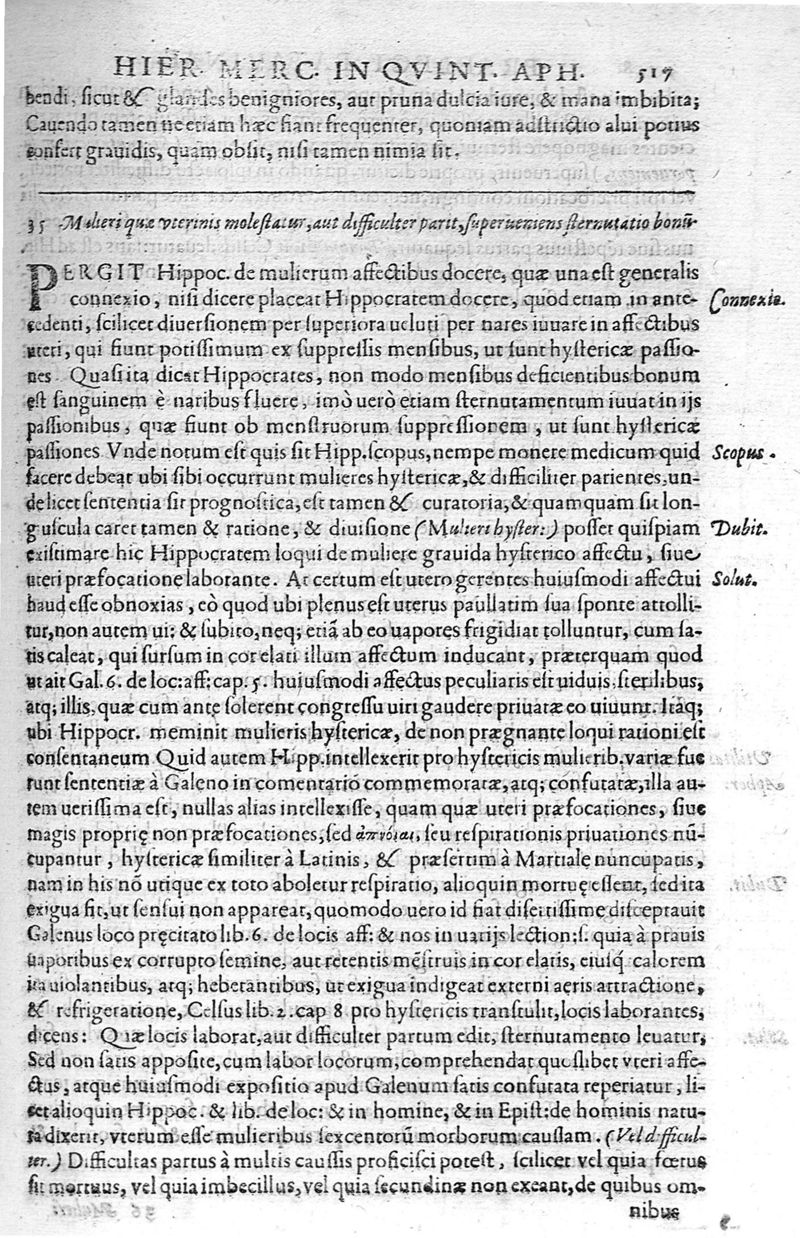 HIER. MERC. IN QVINT. APH. 517
bendi, sicut & glandes benigniores, aut pruna dulcia iure, & mana imbibita;
Cauendo tamen ne etiam hæc fiant frequenter, quoniam adstrictio alui potius
confert grauidis, quam obsit, nisi tamen nimia sit.
35 Mulieri quæ vterinis molestatur, aut difficulter parit, superueniens sternutatio bonū.
PERGIT Hippoc. de mulierum affectibus docere, quæ una est generalis
connexio, nisi dicere placeat Hippocratem docere, quod etiam in ante- Connexio.
cedenti, scilicet diuersionem per superiora ueluti per nares iuuare in affectibus
uteri, qui fiunt potissimum ex suppressis mensibus, ut sunt hystericæ passio-
nes. Quasi ita dicat Hippocrates, non modo mensibus deficientibus bonum
est sanguinem è naribus fluere, imò uerò etiam sternutamentum iuuat in ijs
passionibus, quæ fiunt ob menstruorum suppressionem, ut sunt hystericæ
passiones Vnde notum est quis sit Hipp. scopus, nempe monere medicum quid Scopus.
facere debeat ubi sibi occurrunt mulieres hystericæ, & difficiliter parientes, un-
de licet sententia sit prognostica, est tamen & curatoria, & quamquam sit lon-
guscula caret tamen & ratione, & diuisione (Mulieri hyster:) posset quispiam Dubit.
existimare hic Hippocratem loqui de muliere grauida hysterico affectu, siue
uteri præfocatione laborante. At certum est utero gerentes huiusmodi affectui Solut.
haud esse obnoxias, eò quod ubi plenus est uterus paullatim sua sponte attolli-
tur, non autem ui: & subito, neq; etiā ab eo uapores frigidiat tolluntur, cum sa-
tis caleat, qui sursum in cor elati illum affectum inducant, præterquam quod
ut ait Gal. 6. de loc: aff: cap. 5. huiusmodi affectus peculiaris est uiduis, sterilibus,
atq; illis, quæ cum ante solerent congressu uiri gaudere priuatæ eo uiuunt. Itaq;
ubi Hippocr. meminit mulieris hystericæ, de non prægnante loqui rationi est
consentaneum Quid autem Hipp. intellexerit pro hystericis mulierib. variæ fue
runt sententiæ à Galeno in comentario commemoratæ, atq; confutatæ, illa au-
tem uerissima est, nullas alias intellexisse, quam quæ uteri præfocationes, siue
magis propriè non præfocationes, sed ἀπνόιαι, seu respirationis priuationes nū-
cupantur, hystericæ similiter à Latinis, & præsertim à Martiale nuncupatis,
nam in his nō utique ex toto aboletur respiratio, alioquin mortuę essent, sed ita
exigua fit, ut sensui non appareat, quomodo uero id fiat disertissime disceptauit
Galenus loco pręcitato lib. 6. de locis aff: & nos in uarijs lection: s. quia à prauis
uaporibus ex corrupto semine, aut retentis mēstruis in cor elatis, eiusq́ calorem
ita uiolantibus, atq; hebetantibus, ut exigua indigeat externi aeris attractione,
& refrigeratione, Celsus lib. 2. cap 8 pro hystericis transtulit, locis laborantes,
dicens: Quæ locis laborat, aut difficulter partum edit, sternutamento leuatur,
Sed non satis apposite, cum labor locorum, comprehendat quoslibet vteri affe-
ctus, atque huiusmodi expositio apud Galenum satis confutata reperiatur, li-
cet alioquin Hippoc. & lib. de loc: & in homine, & in Epist: de hominis natu-
ra dixerit, vterum esse mulieribus sexcentorū morborum caussam. (Vel difficul-
ter.) Difficultas partus à multis caussis proficisci potest, scilicet vel quia fœtus
sit mortuus, vel quia imbecillus, vel quia secundinæ non exeant, de quibus om-
nibus